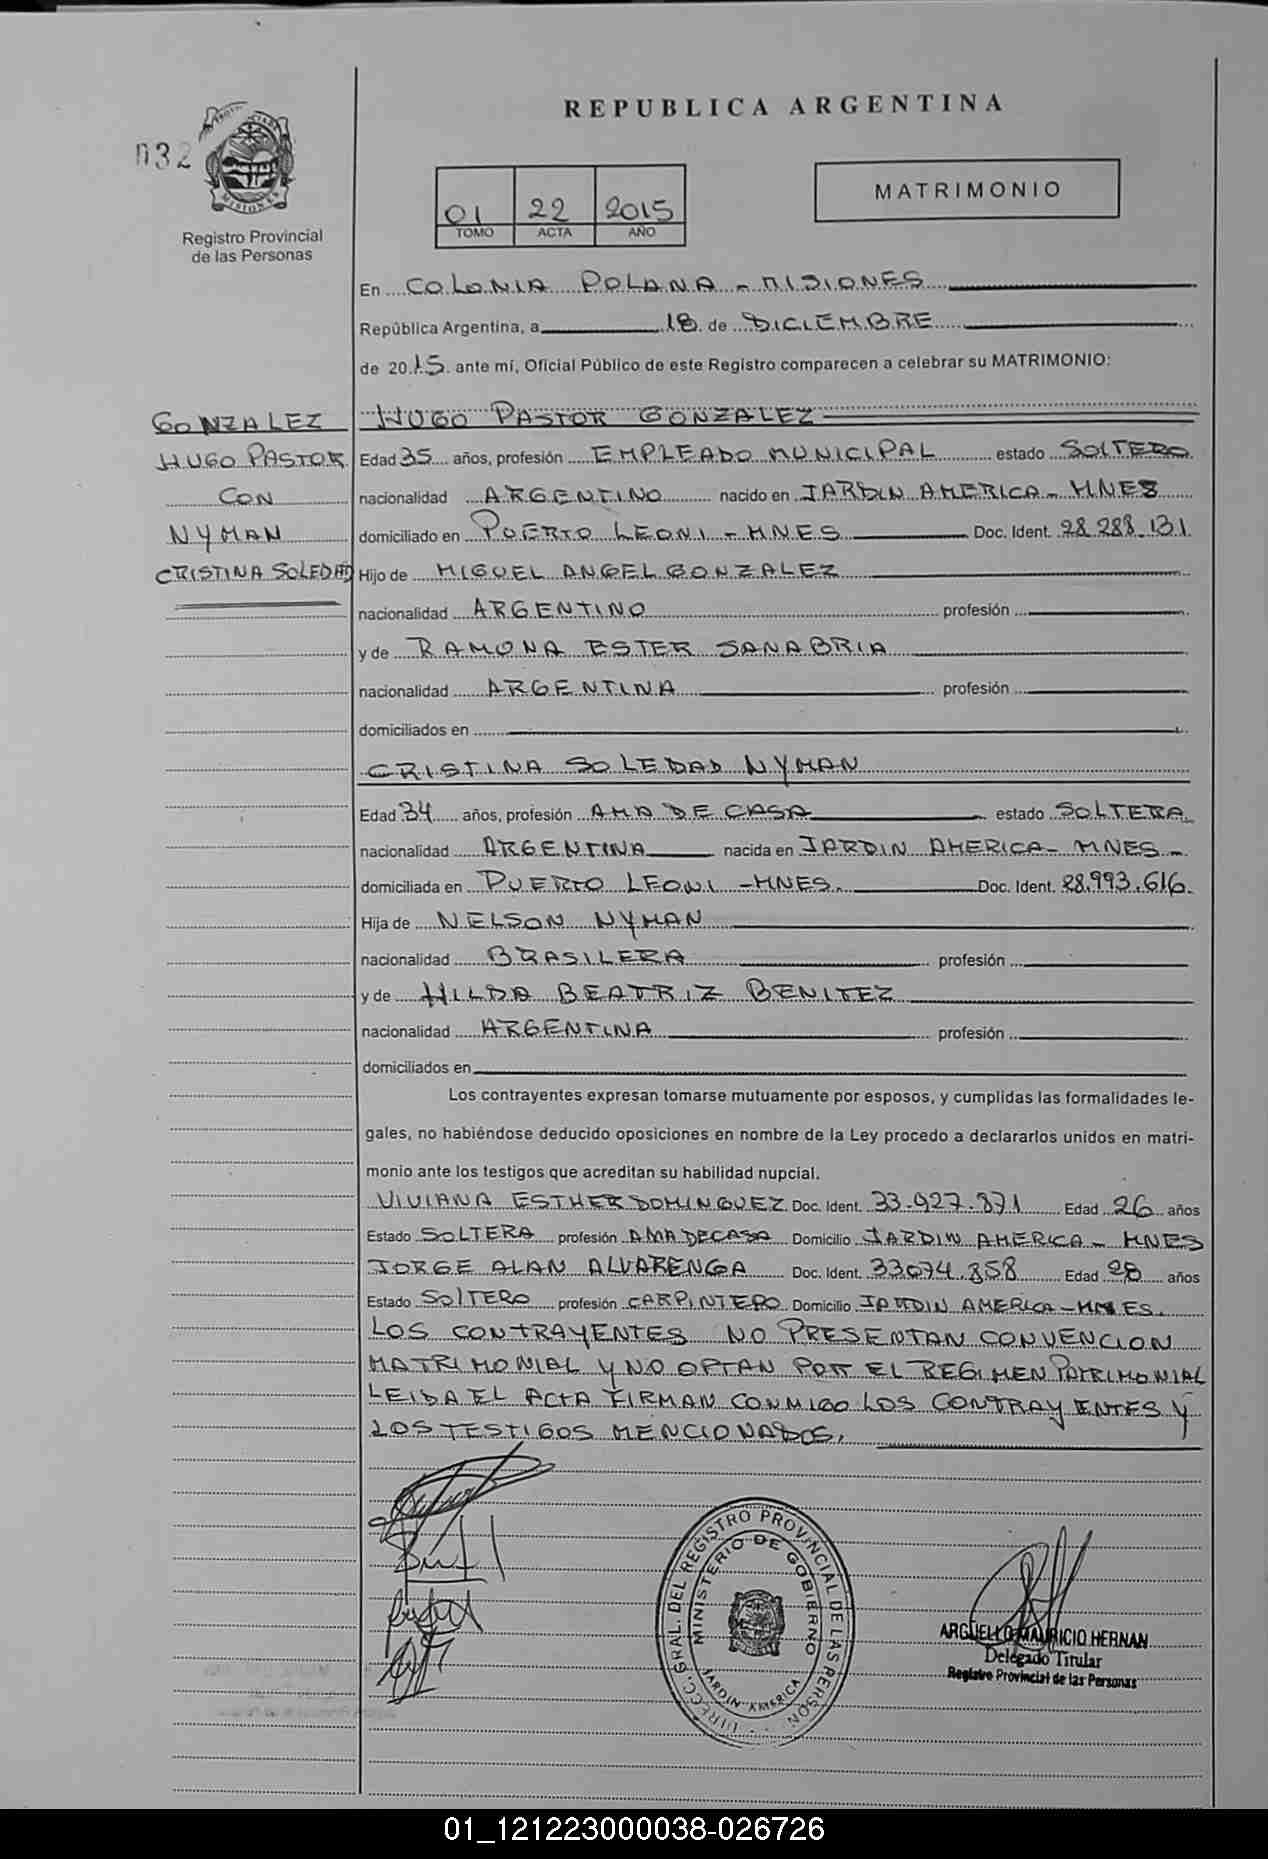 REPUBLICA ARGENTINA
032
MISIONES
Registro Provincial
de las Personas
01 22 2015
TOMO ACTA AÑO
MATRIMONIO
En COLONIA POLANA - MISIONES
República Argentina, a 18 de DICIEMBRE
de 2015 ante mí, Oficial Público de este Registro comparecen a celebrar su MATRIMONIO:
GONZALEZ
HUGO PASTOR
CON
NYMAN
CRISTINA SOLEDAD
HUGO PASTOR GONZALEZ
Edad 35 años, profesión EMPLEADO MUNICIPAL estado SOLTERO
nacionalidad ARGENTINO nacido en JARDIN AMERICA - MNES
domiciliado en PUERTO LEONI - MNES Doc. Ident. 28.288.131
Hijo de MIGUEL ANGEL GONZALEZ
nacionalidad ARGENTINO profesión
y de RAMONA ESTER SANABRIA
nacionalidad ARGENTINA profesión
domiciliados en
CRISTINA SOLEDAD NYMAN
Edad 34 años, profesión AMA DE CASA estado SOLTERA
nacionalidad ARGENTINA nacida en JARDIN AMERICA - MNES -
domiciliada en PUERTO LEONI - MNES. Doc. Ident. 28.993.616.
Hija de NELSON NYMAN
nacionalidad BRASILERA profesión
y de HILDA BEATRIZ BENITEZ
nacionalidad ARGENTINA profesión
domiciliados en
Los contrayentes expresan tomarse mutuamente por esposos, y cumplidas las formalidades le-
gales, no habiéndose deducido oposiciones en nombre de la Ley procedo a declararlos unidos en matri-
monio ante los testigos que acreditan su habilidad nupcial.
VIVIANA ESTHER DOMINGUEZ Doc. Ident. 33.927.871 Edad 26 años
Estado SOLTERA profesión AMA DE CASA Domicilio JARDIN AMERICA - MNES
JORGE ALAN ALVARENGA Doc. Ident. 33074.858 Edad 28 años
Estado SOLTERO profesión CARPINTERO Domicilio JARDIN AMERICA - MNES.
LOS CONTRAYENTES NO PRESENTAN CONVENCION
MATRIMONIAL Y NO OPTAN POR EL REGIMEN PATRIMONIAL
LEIDA EL ACTA FIRMAN CONMIGO LOS CONTRAYENTES Y
LOS TESTIGOS MENCIONADOS.
DIRECC. GRAL. DEL REGISTRO PROVINCIAL DE LAS PERSON.
MINISTERIO DE GOBIERNO
JARDIN AMERICA
ARGÜELLO MAURICIO HERNAN
Delegado Titular
Registro Provincial de las Personas
01_121223000038-026726